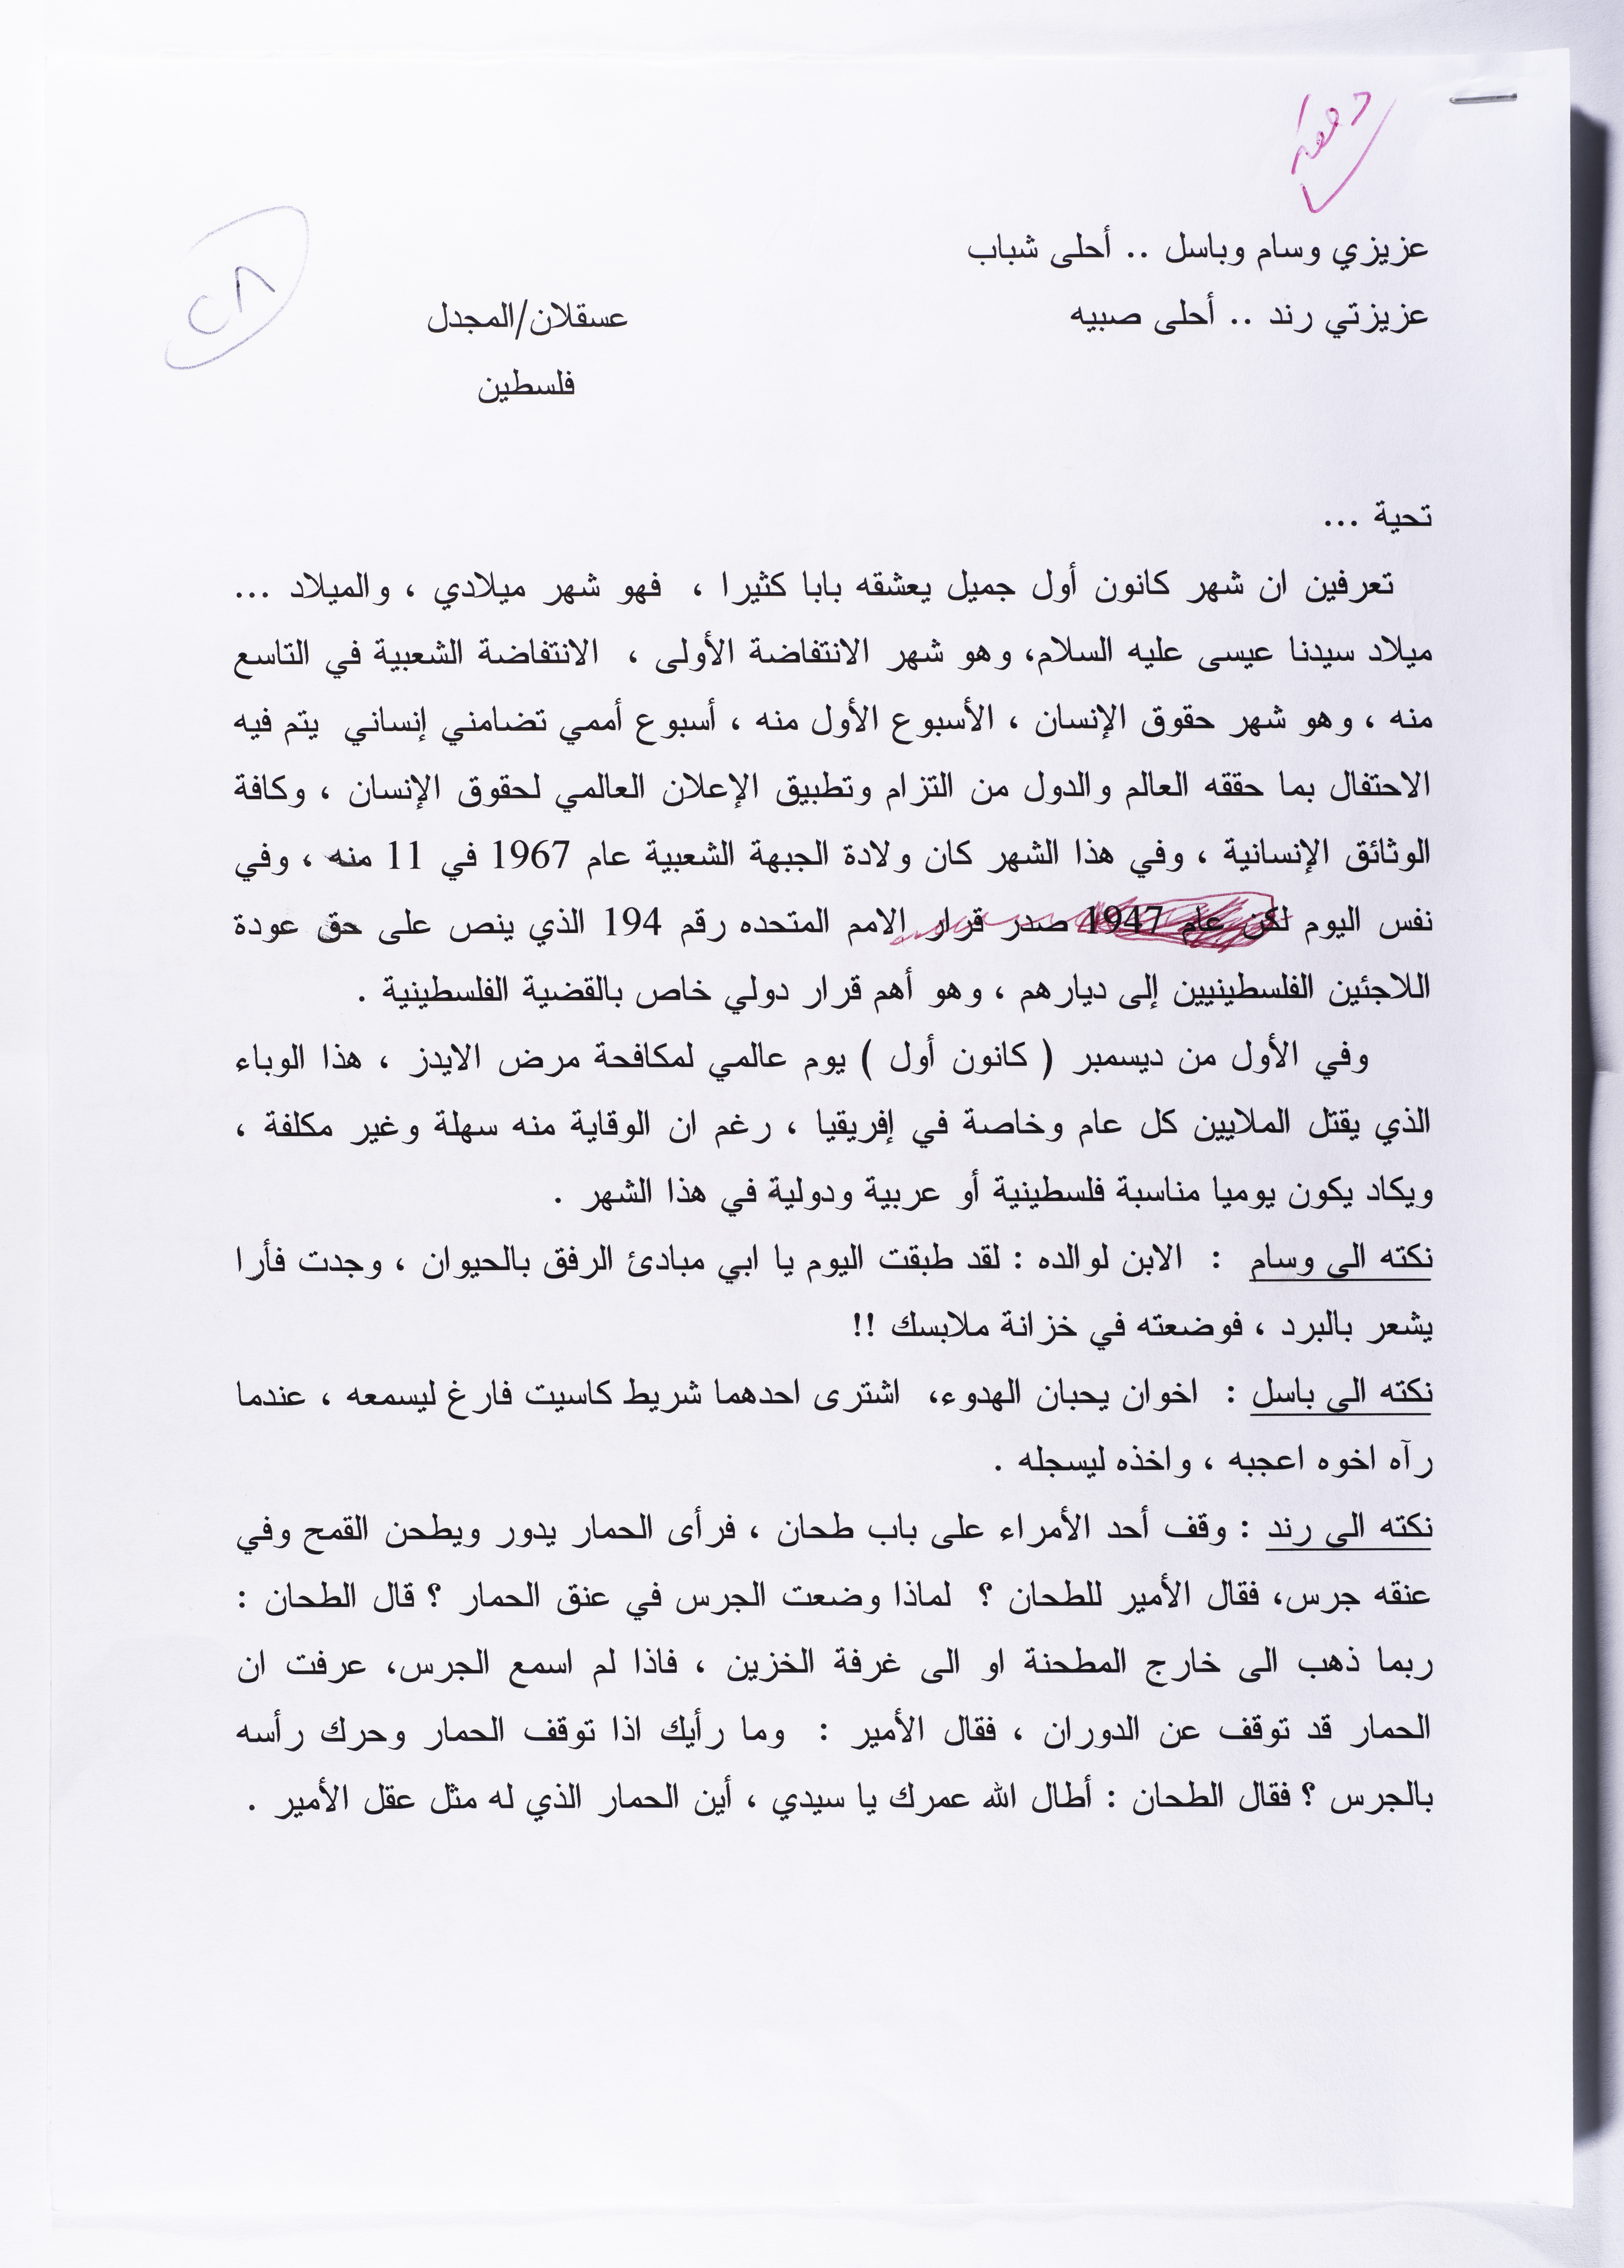 عزيزي وسام وباسل .. أحلى شباب
عزيزتي رند .. أحلى صبيه
عسقلان/المجدل
فلسطين
٢٨
تحية ...
تعرفين ان شهر كانون أول جميل يعشقه بابا كثيرا ، فهو شهر ميلادي ، والميلاد ...
ميلاد سيدنا عيسى عليه السلام، وهو شهر الانتفاضة الأولى ، الانتفاضة الشعبية في التاسع
منه ، وهو شهر حقوق الإنسان ، الأسبوع الأول منه ، أسبوع أممي تضامني إنساني يتم فيه
الاحتفال بما حققه العالم والدول من التزام وتطبيق الإعلان العالمي لحقوق الإنسان ، وكافة
الوثائق الإنسانية ، وفي هذا الشهر كان ولادة الجبهة الشعبية عام 1967 في 11 منه ، وفي
نفس اليوم لكن عام 1947 صدر قرار الامم المتحده رقم 194 الذي ينص على حق عودة
اللاجئين الفلسطينيين إلى ديارهم ، وهو أهم قرار دولي خاص بالقضية الفلسطينية .
وفي الأول من ديسمبر ( كانون أول ) يوم عالمي لمكافحة مرض الايدز ، هذا الوباء
الذي يقتل الملايين كل عام وخاصة في إفريقيا ، رغم ان الوقاية منه سهلة وغير مكلفة ،
ويكاد يكون يوميا مناسبة فلسطينية أو عربية ودولية في هذا الشهر .
نكته الى وسام : الابن لوالده : لقد طبقت اليوم يا ابي مبادئ الرفق بالحيوان ، وجدت فأرا
يشعر بالبرد ، فوضعته في خزانة ملابسك !!
نكته الى باسل : اخوان يحبان الهدوء، اشترى احدهما شريط كاسيت فارغ ليسمعه ، عندما
رآه اخوه اعجبه ، واخذه ليسجله .
نكته الى رند : وقف أحد الأمراء على باب طحان ، فرأى الحمار يدور ويطحن القمح وفي
عنقه جرس، فقال الأمير للطحان ؟ لماذا وضعت الجرس في عنق الحمار ؟ قال الطحان :
ربما ذهب الى خارج المطحنة او الى غرفة الخزين ، فاذا لم اسمع الجرس، عرفت ان
الحمار قد توقف عن الدوران ، فقال الأمير : وما رأيك اذا توقف الحمار وحرك رأسه
بالجرس ؟ فقال الطحان : أطال الله عمرك يا سيدي ، أين الحمار الذي له مثل عقل الأمير .